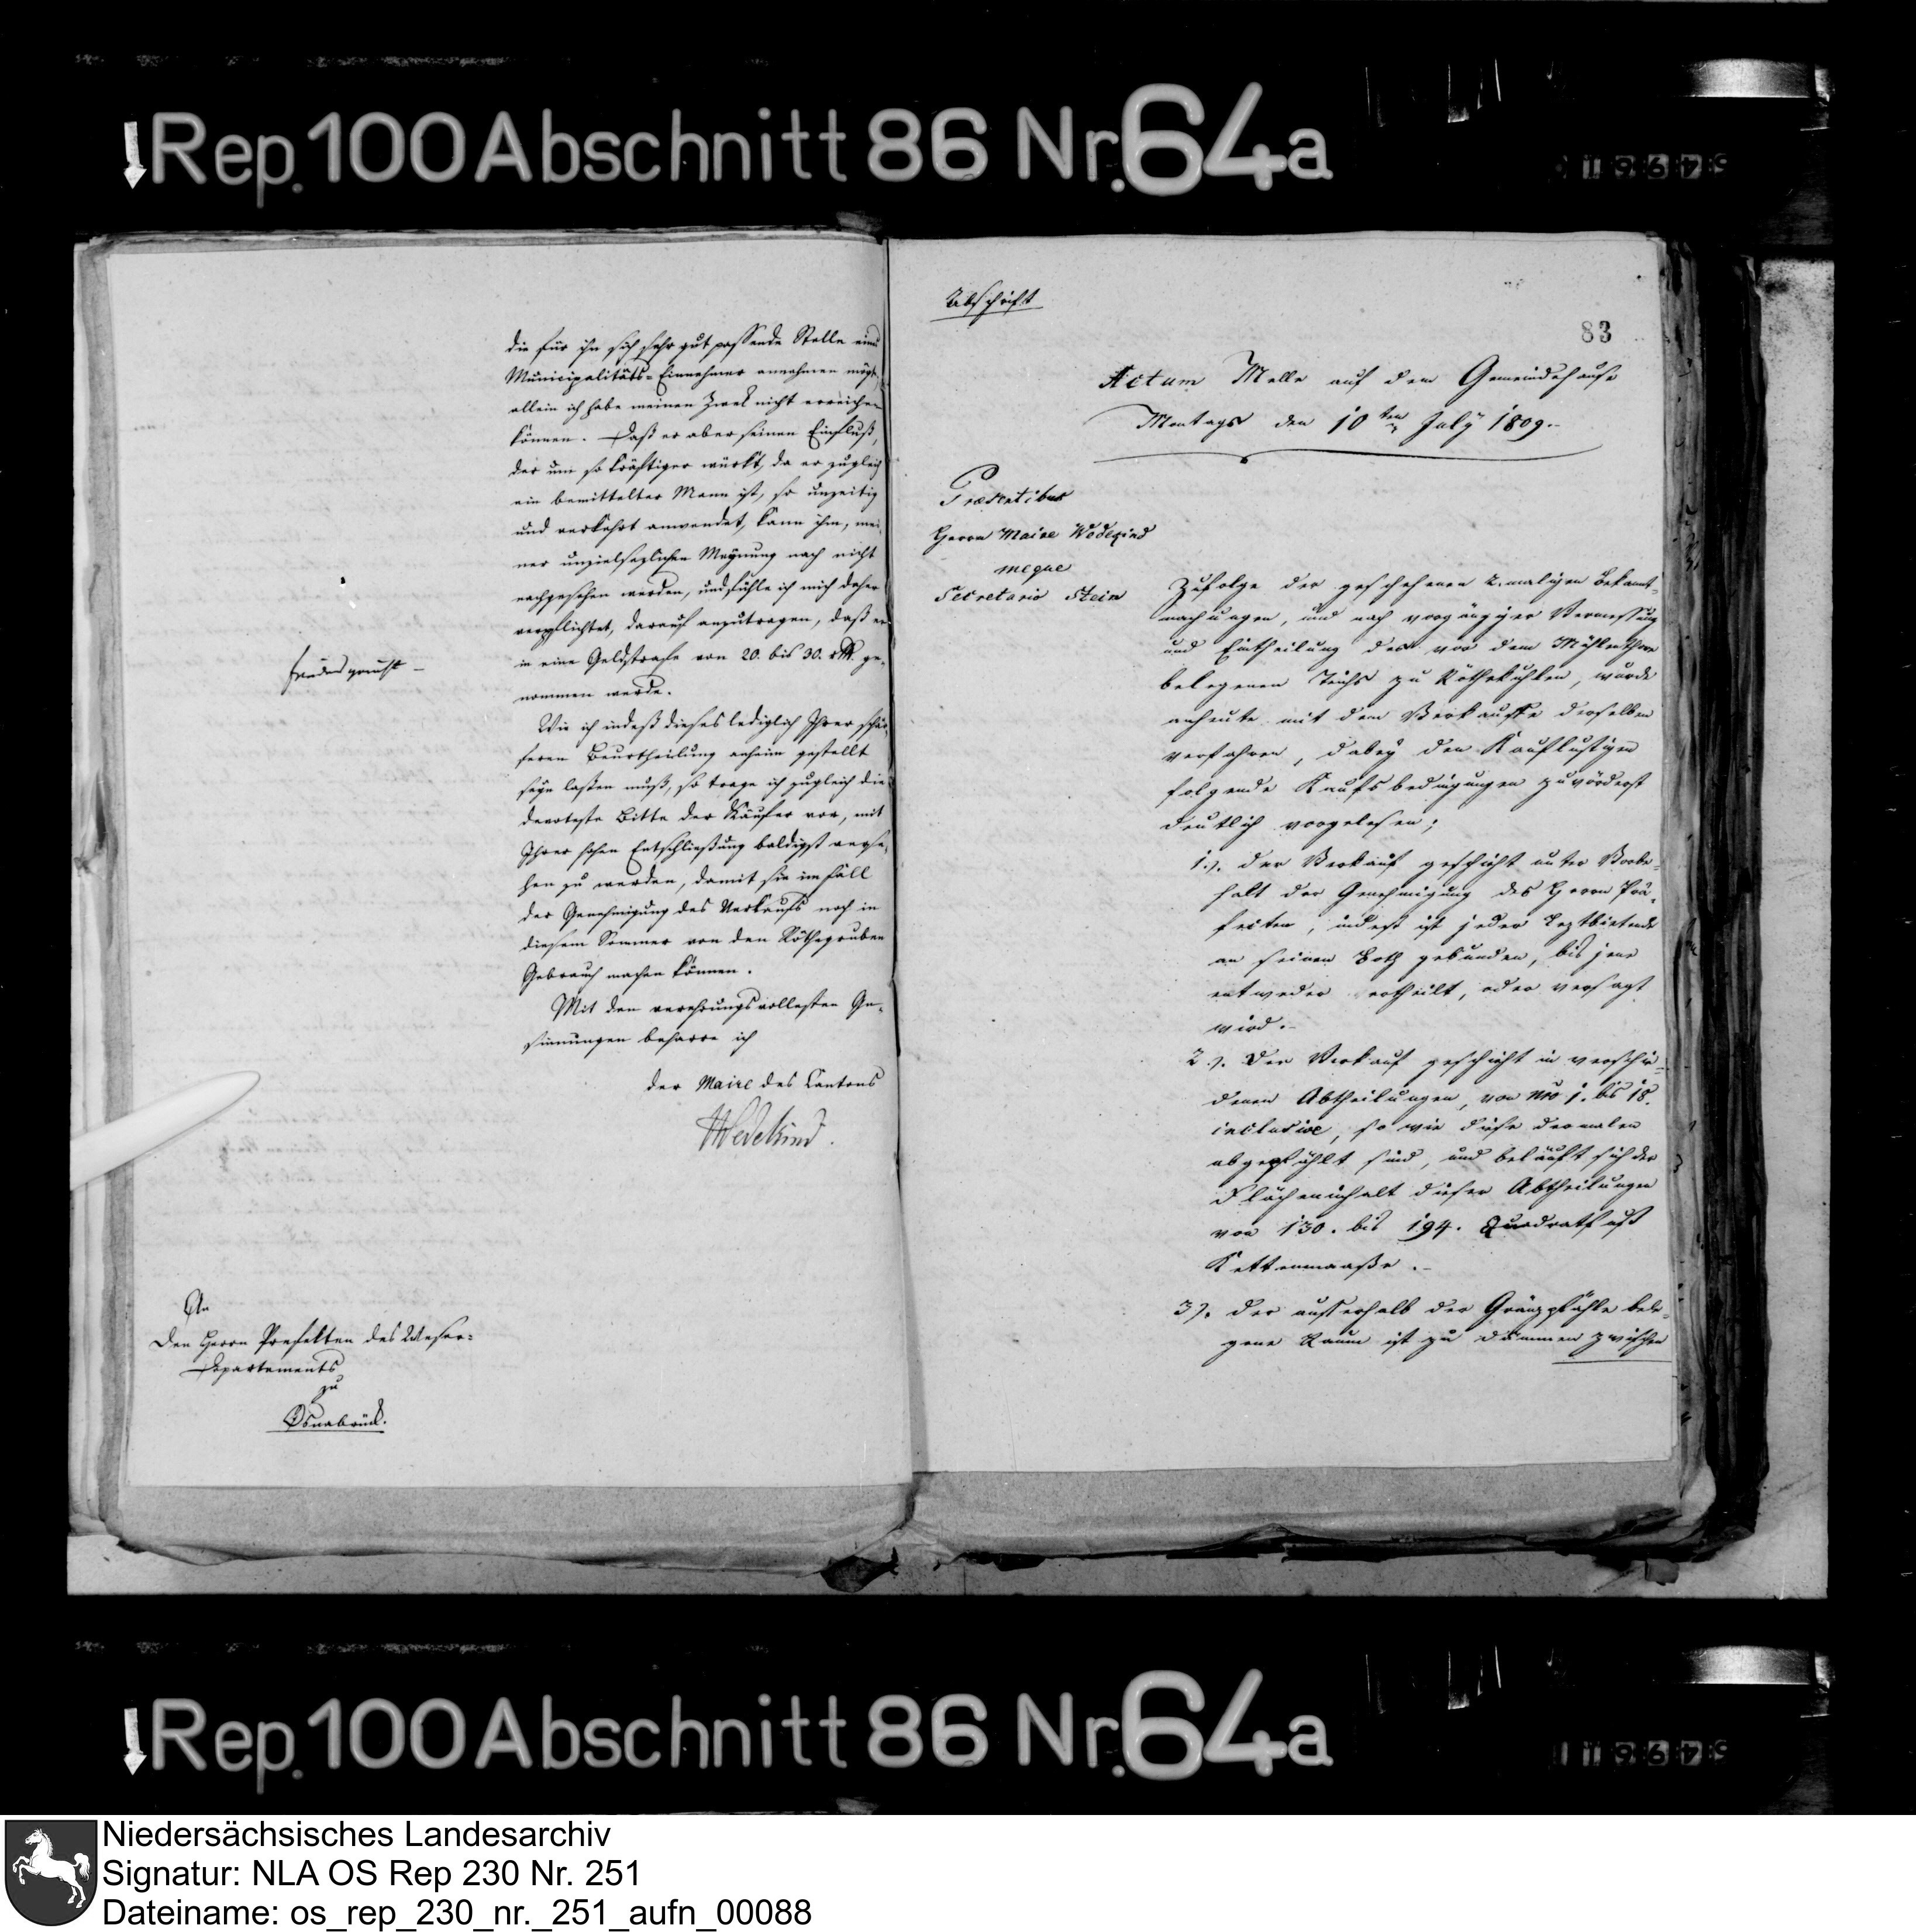 Rep. 100 Abschnitt 86 Nr. 64a
die für ihn sich sehr gut passende Stelle eines
Municipalitäts-Einnehmer annehmen mögte,
allein ich habe meinen Zwek nicht erreichen
können. Daß er aber seinen Einfluß,
der um so kräftiger würkt, da er zugleich
ein bemittelter Mann ist, so unzeitig
und verkehrt anwendet, kann ihm, mei-
ner unzielsezlichen Meynung nach nicht
nachgesehen werden, und fühle ich mich daher
verpflichtet, darauf anzutragen, daß er
in eine Geldstrafe von 20. bis 30. rthlr. ge-
nommen werde.
Wie ich indeß dieses lediglich Ihrer schär-
feren Beurtheilung anheim gestellt
seyn laßen muß, so trage ich zugleich die
devoteste Bitte der Käufer vor, mit
Ihrer hohen Entschließung baldigst verse-
hen zu werden, damit sie im Fall
der Genehmigung des Verkaufs noch in
diesem Sommer von den Röthegruben
Gebrauch machen können.
Mit den verehrungsvollesten Ge-
sinnungen beharre ich
der Maire des Cantons
Wedekind.
An
den Herrn Prefekten des Weser-
Departements
zu
Osnabrück.
Abschrift
83
Actum Melle auf dem Gemeindehause
Montags den 10ten July 1809.
Præsentibus
Herrn Maire Wedekind
meque
Secretario Stein
Zufolge der geschehenen 2.maligen Bekannt-
machungen, und nach vorgängiger Vermessung
und Eintheilung des vor dem Mühlenthore
belegenen Teichs zu Röthekuhlen, wurde
anheute mit dem Verkauffe derselben
verfahren, dabey den Kauflustigen
folgende Kaufsbedingungen zuvörderst
deutlich vorgelesen;
1.). der Verkauf geschieht unter Vorbe-
halt der Genehmigung des Herrn Prä-
fecten, indeß ist jeder Leztbietende
an seinen Both gebunden, bis jene
entweder ertheilt, oder versagt
wird.
2.). Der Verkauf geschieht in verschie-
denen Abtheilungen, von Nro 1. bis 18.
inclusive, so wie diese dermalen
abgepfählt sind, und beläuft sich der
Flächeninhalt dieser Abtheilungen
von 130. bis 194. Quadratfuß
Kettenmaaße.
3). der ausserhalb der Gränzpfähle bele-
gene Raum ist zu Dämmen zwischen
Rep. 100 Abschnitt 86 Nr. 64a
Niedersächsisches Landesarchiv
Signatur: NLA OS Rep 230 Nr. 251
Dateiname: os_rep_230_nr._251_aufn_00088